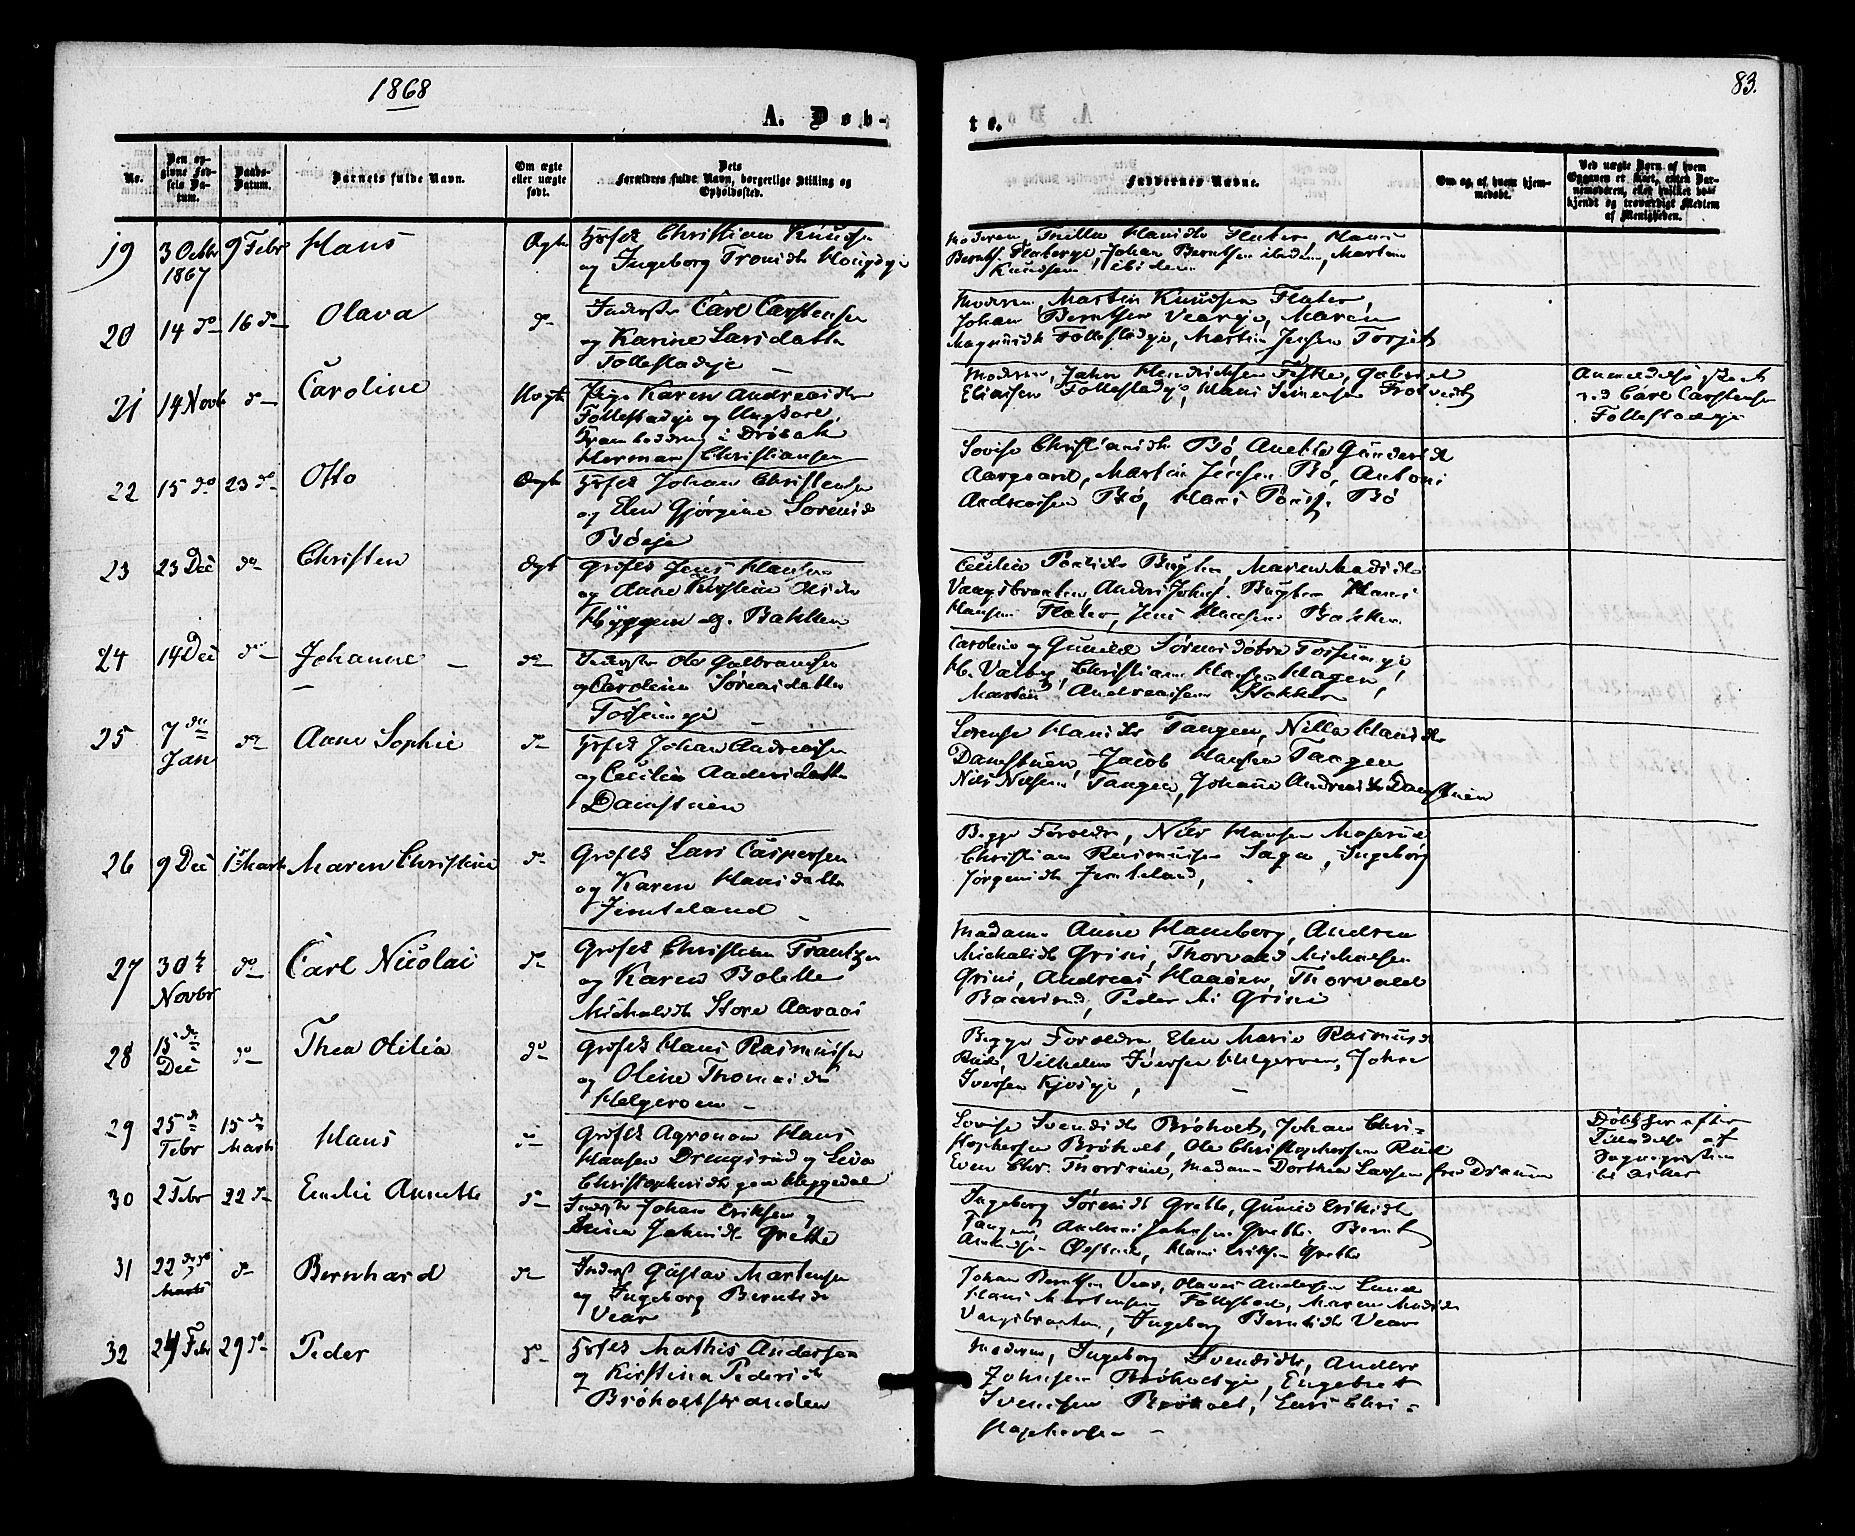 1868
83.
A. Døb-
te.
No.
Den op-
givne Fød-
sels Da-
tum.
Daabs-
Datum.
Barnets fulde Navn.
Om ægte
eller uægte
født.
Dets
Forældres fulde Navn, borgerlige Stilling og
Opholdssted.
Faddernes Navne.
Om og af hvem hjem-
medøbt.
Ved uægte Børn, af hvem
Opgaven er skeet, enten Bar-
nemoderen, eller hvilket be-
kjendt og troværdigt Medlem
af Menigheden.
19
3 Octbr
1867
9 Febr
Hans
Ægte
Christian Knudsen
og Ingeborg
Moderen,
Johan Berntsen ibidem, Martin
Knudsen ibidem
20
14 do
16 do
Olava
do
Inderst Carl Carstensen
og Karine Larsdatter
Follestadeje
Moderen, Martin Knudsen
Johan Berntsen Veareje, Maren
Follestadeje, Martin Jensen
21
14 Novb
do
Caroline
Uægte
Pige Karen Andreasdtr
Follestadeje og Ungkarl
i Drøbak
Herman Christiansen
Moderen, John Hendrichsen Gabriel
Eliasen Follestadeje, Hans Simensen
Anmeldelse skeet
ved Carl Carstensen
Follestadeje
22
15 do
23 do
Otto
Ægte
Johan Christensen
og Elen Gjørgine Sørensd
Bøeje
Lovise Christiansdtr Bø, Anette Gundersd
Aargaard, Martin Jensen Bø, Anton
Andreassen Bø, Hans Bø
23
23 Dec
do
Christen
Ægt
Grdfes Jens Hansen
og Anne Kirstine Olsdtr
Hyggen Bakken
Cecilie Maren Madsdtr
Vangsbraaten, Anders Hans
Hansen Jens Hansen Bakken
24
14 Dec
do
Johanne
do
Inderst Ole Gulbransen
og Caroline Sørensdatter
Fossumeje
Caroline og Gunild Sørensdøtre Fossumeje
Christian Hansen Hagen,
Martin Andreassen Stokker
25
7 de
Jan
do
Anne Sophie
do
Johan Andreassen
og Cecilie Andersdatter
Damstuen
Lorense Hansdtr Tangen, Nilla Hansdtr
Damstuen, Jacob Hansen Tangen
Nils Nilsen Tangen, Johane Andreasdtr Damstuen
26
9 Dec
1 Marts
Maren Christine
do
Grdfes Lars Caspersen
og Karen Hansdatter
Jemteland
Begge Forældre, Nils Hansen
Christian Rasmussen Ingeborg
Jørgensdtr Jemteland,
27
30 te
Novbr
do
Carl Nicolai
do
Grdfes Christian Frantzen
og Karen Bolette
Michalsdtr Store Aaraas
Madame Anne Hamborg, Andrea
Michalsdt Grini, Thorvald Michalsen
Grini, Andreas Thorvald
Peder Grini
28
15 de
Dec
do
Thea Otilia
do
Grdfes Hans Rasmussen
og Oline Thomasdtr
Helgeroen
Begge Forældre, Elen Marie Rasmusd
Vilhelm Iversen Helgeroen, Johan
Iversen Kjoseje,
29
25 de
Febr
15 de
Marts
Hans
do
Grdfes Agronom Hans
Hansen Drengsrud og Lisa
Christophersdtr
Lovise Svendsdtr Brøholt, Johan Chri-
stophersen Brøholt, Ole Christophersen Rud
Even Chr. Madam Dorthea Larsen fra Dramm
Døbt her efter
Tilladelse af
Sognepræsten
til Asker
30
2 Febr
22 do
Emilie Annette
do
Inderst Johan Eriksen og
Johnsdtr Grette
Ingeborg Sørensdt Grette, Gunild Eriksdtr
Tangen, Anders Johnsen Grette, Bernt
Hans Eriksen Grette
31
22
Marts
do
Bernhard
do
Inderst Gustav Martensen
og Ingeborg Berntsdtr
Vear
Johan Berntsen Vear, Olaves Andersen Lund
Hans Martensen Follestad, Maren Madsdtr
Vangsbraaten, Ingeborg Berntsdtr Vear
32
24 Febr
29 do
Peder
do
Mathis Andersen
og Kirstina Pedersdtr
Brøholtstranden
Moderen, Ingeborg Svendsdtr, Anders
Johnsen Brøholteje, Engebret
Svensen Brøholt, Lars Chri-
stophersen